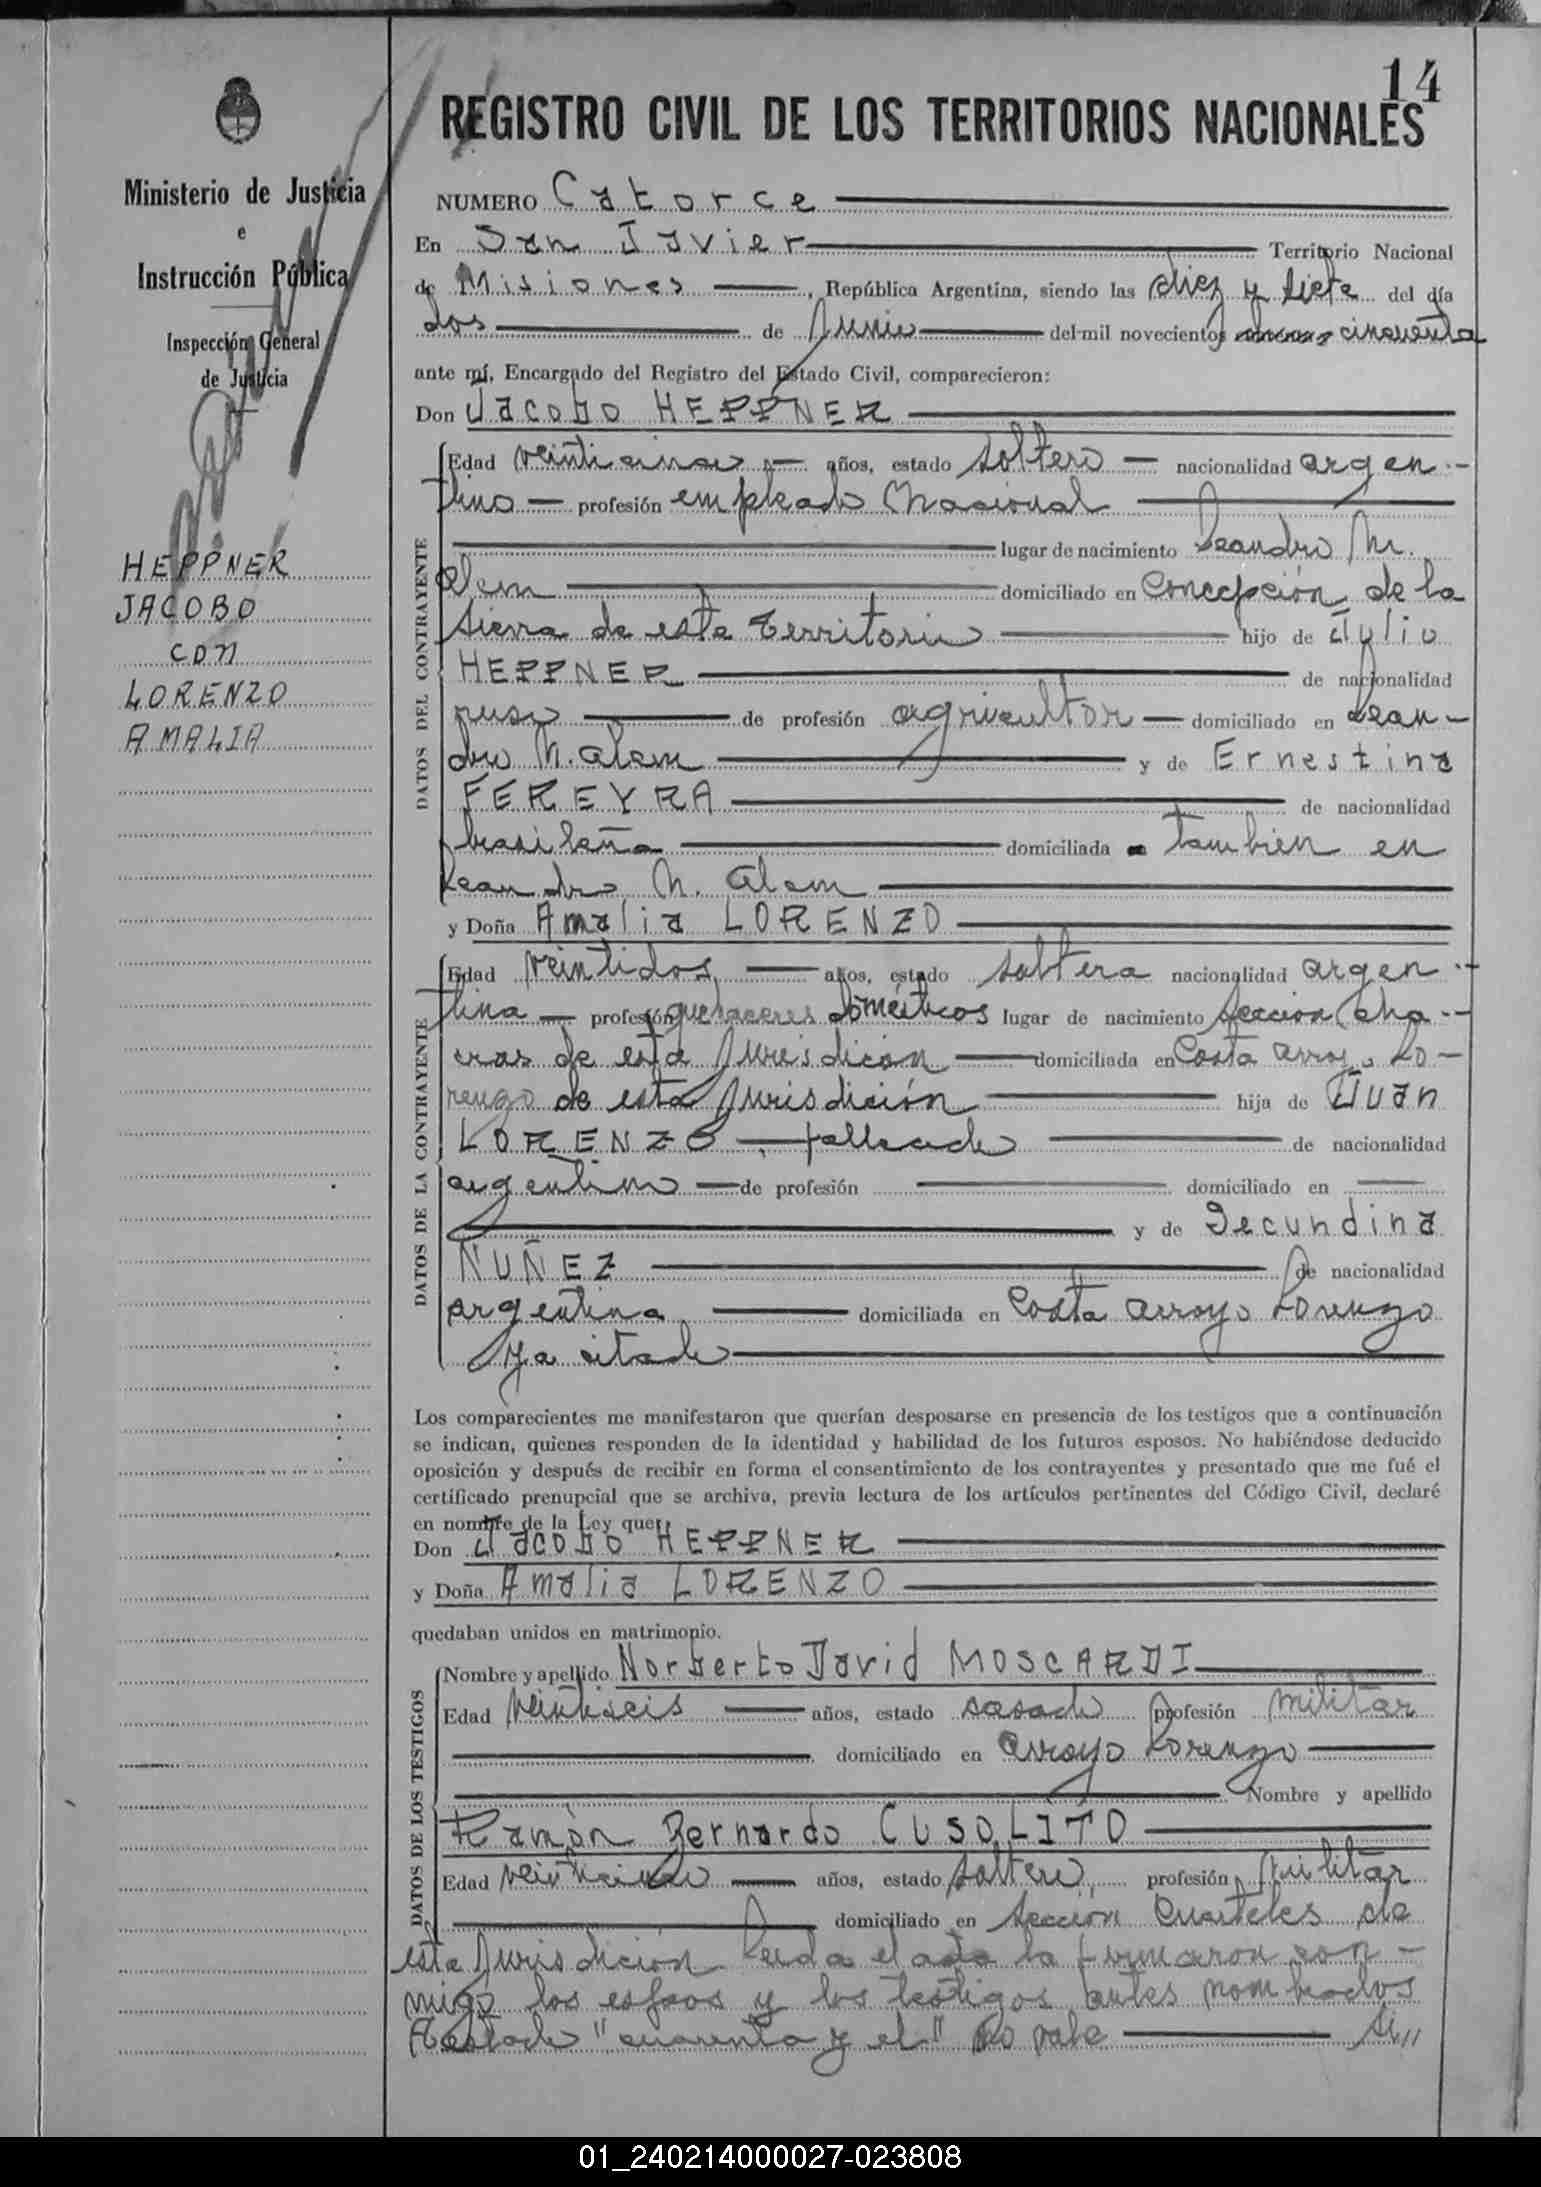 14
REGISTRO CIVIL DE LOS TERRITORIOS NACIONALES
Ministerio de Justicia
e
Instrucción Pública
Inspección General
de Justicia
HEPPNER
JACOBO
CON
LORENZO
AMALIA
NUMERO Catorce
En San Javier Territorio Nacional
de Misiones, República Argentina, siendo las diez y siete del día
dos de Junio del mil novecientos cincuenta
ante mí, Encargado del Registro del Estado Civil, comparecieron:
Don Jacobo HEPPNER
DATOS DEL CONTRAYENTE
Edad años, estado soltero nacionalidad argen-
tino profesión empleado Nacional
lugar de nacimiento Leandro N.
Alem domiciliado en Concepción de la
Sierra de este Territorio hijo de Julio
HEPPNER de nacionalidad
ruso de profesión agricultor domiciliado en Lean-
dro N. Alem y de Ernestina
FEREYRA de nacionalidad
brasileña domiciliada también en
Leandro N. Alem
y Doña Amalia LORENZO
DATOS DE LA CONTRAYENTE
Edad veintidos años, estado soltera nacionalidad argen-
tina profesión quehaceres domésticos lugar de nacimiento Sección Cha-
cras de esta Jurisdición domiciliada en Costa arroyo Lo-
renzo de esta Jurisdición hija de Juan
LORENZO, fallecido de nacionalidad
argentino de profesión domiciliado en
y de Secundina
NUÑEZ de nacionalidad
argentina domiciliada en Costa arroyo Lorenzo
ya citado
Los comparecientes me manifestaron que querían desposarse en presencia de los testigos que a continuación
se indican, quienes responden de la identidad y habilidad de los futuros esposos. No habiéndose deducido
oposición y después de recibir en forma el consentimiento de los contrayentes y presentado que me fué el
certificado prenupcial que se archiva, previa lectura de los artículos pertinentes del Código Civil, declaré
en nombre de la Ley que:
Don Jacobo HEPPNER
y Doña Amalia LORENZO
quedaban unidos en matrimonio.
DATOS DE LOS TESTIGOS
Nombre y apellido Norberto David MOSCARDI
Edad veintiseis años, estado casado profesión militar
domiciliado en arroyo Lorenzo
Nombre y apellido
Ramón Bernardo CUSOLITO
Edad veinticinco años, estado soltero, profesión militar
domiciliado en Sección Cuarteles de
esta Jurisdición Leida el acta la firmaron con-
migo los esposos y los testigos antes nombrados
Testado "cuarenta y el" No vale
01_240214000027-023808